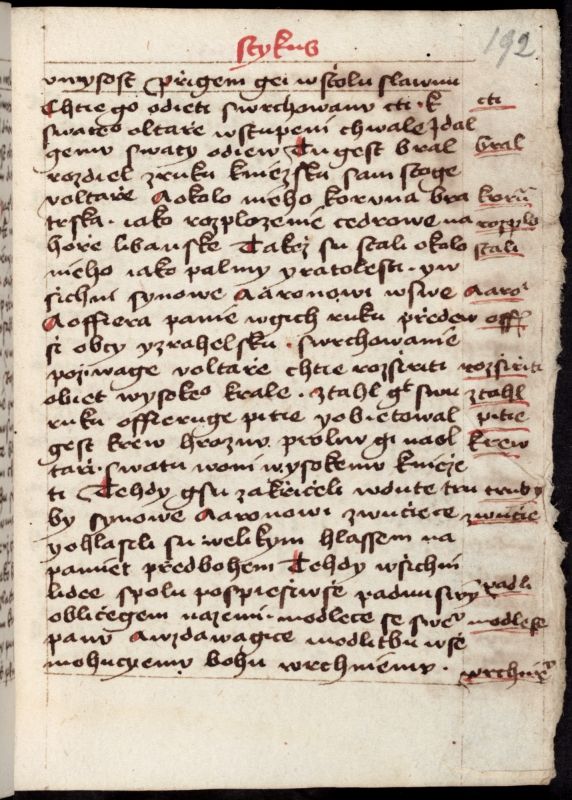 stykus
192
vwysost přigem gei wstolu slawnu
Chtie go odieti swrchowanu cti · k
swate⁰ oltaře wstupeni chwale Jdal
gemu swaty odiew Tu gest bral
rozdiel zruku kniezsku sam stoge
voltaře Aokolo nieho koruna bra
trska · iako rozplozenie cedrowe na
hoře libanske Takez su stali okolo
nieho iako palmy yratolesti · yw
sichni synowe Aaronowi wswe
Aoffiera panie wgich ruku předew
si obcy yzrahelsku · swrchowanie
pozywage voltaře chtie rozsiriti
obiet wysoke⁰ krale · ztahl gt swu
ruku offieruge pitie yobietowal
gest krew hroznu proliw gi naol
taři · swatu woni wysokemu knieze
ti Tehdy gsu zakřičeli wdute tru
by synowe Aaronowi zwučiece
yohlasili su welikym hlassem na
pamiet předbohem Tehdy wsichni
lidee spolu pospiesiwse padnu swy
obličegem nazemi · modlece se swe
panu Awzdawagice modlitbu wse
mohucyemu bohu wrchniemu ·
cti
bral
korū
rozplo
stali
Aaro
off
rozsiriti
ztahl
pitie
krew
truby
zwučie
padli
modlese
wrchnie